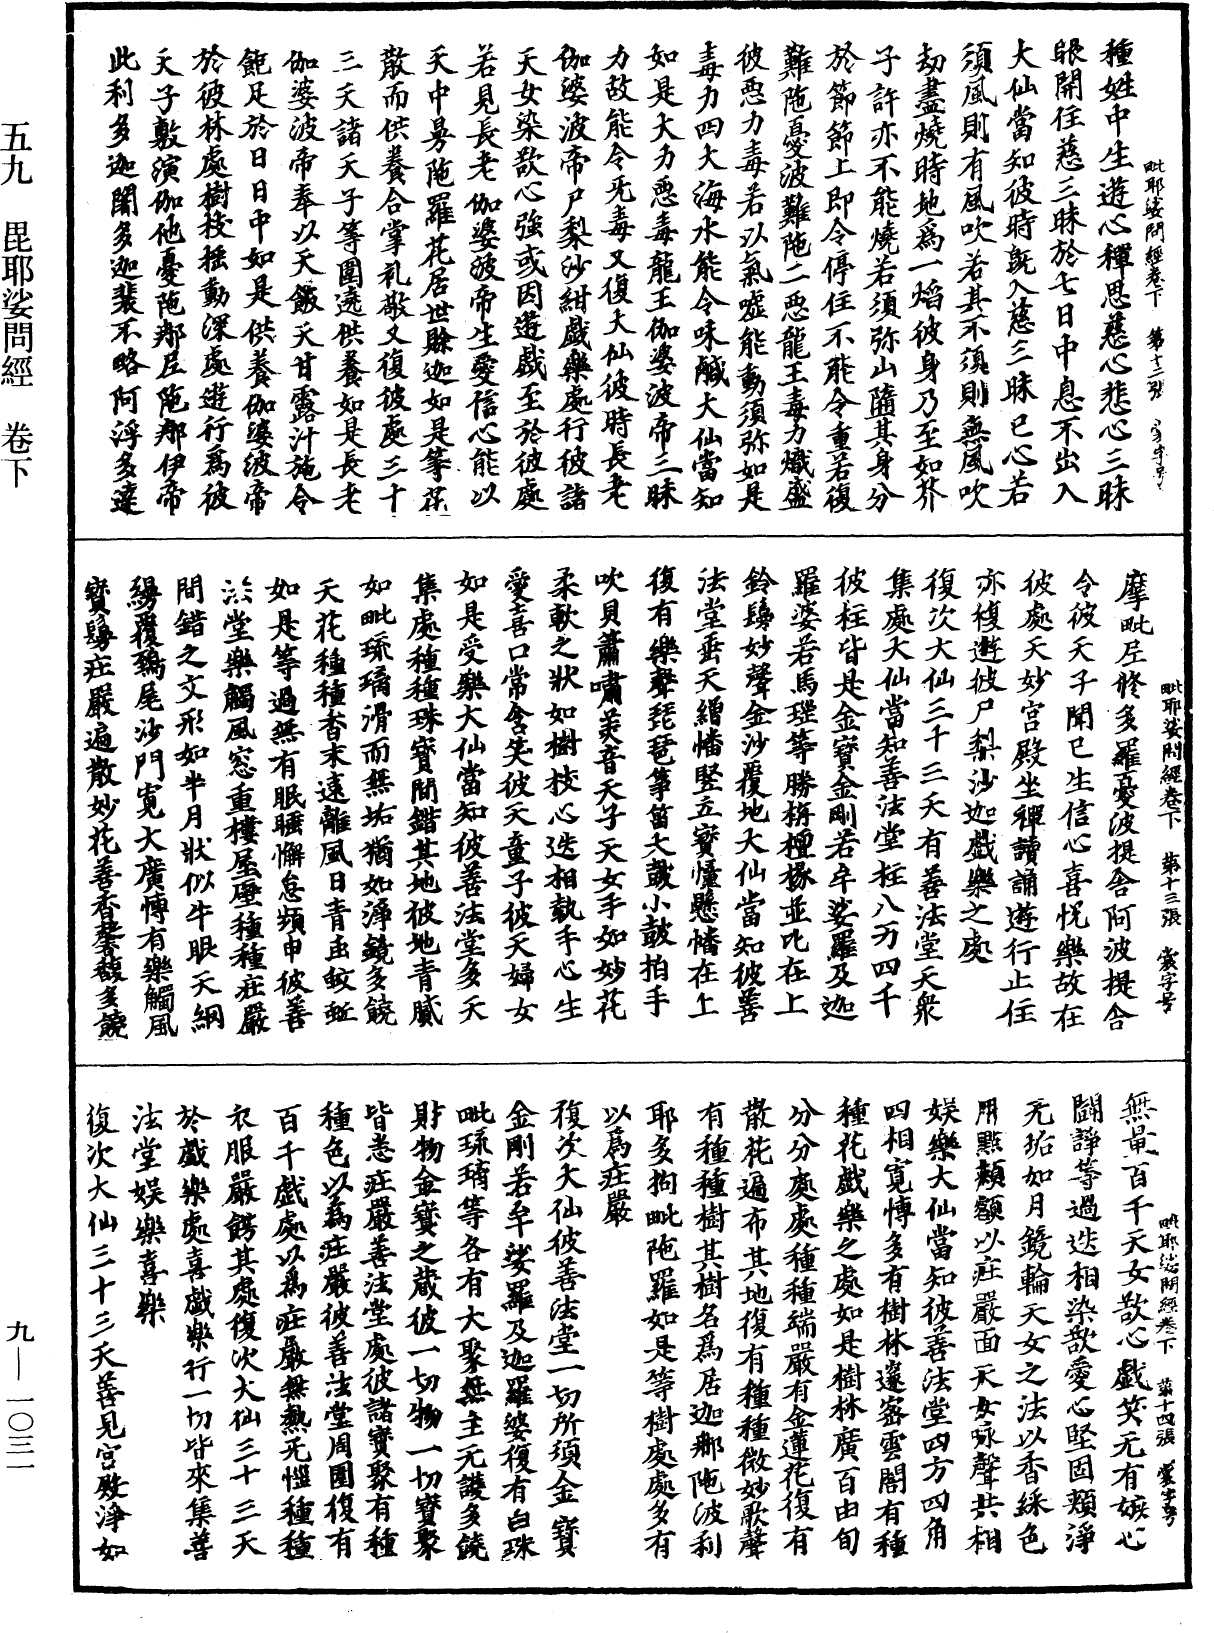 毗耶娑問經卷下　第十二張
種姓中生遊心禪思慈心悲心三昧
眼開住慈三昧於七日中息不出入
大仙當知彼時既入慈三昧已心若
須風則有風吹若其不須則無風吹
劫盡燒時地為一焰彼身乃至如芥
子許亦不能燒若須弥山隨其身分
於節節上即令停住不能令重若復
難陁憂波難陁二惡龍王毒力熾盛
彼惡力毒若以氣噓能動須弥如是
毒力四大海水能令味鹹大仙當知
如是大力惡毒龍王伽婆波帝三昧
力故能令无毒又復大仙彼時長老
伽婆波帝尸梨沙紺戲樂處行彼諸
天女染欲心強或因遊戲至於彼處
若見長老伽婆波帝生愛信心能以
天中曼陁羅花居世賒迦如是等花
散而供養合掌礼敬又復彼處三十
三天諸天子等圍遶供養如是長老
伽婆波帝奉以天飯天甘露汁施令
飽足於日日中如是供養伽婆波帝
於彼林處樹枝揺動深處遊行為彼
天子敷演伽他憂陁那尼陁那伊帝
此利多迦闍多迦裴不略阿浮多達
毗耶娑問經卷下　第十三張　裳字号
摩毗尼修多羅憂波提舍阿波提舍
令彼天子聞已生信心喜悅樂故在
彼處天妙宮殿坐禪讀誦遊行止住
亦復遊彼尸梨沙迦戲樂之處
復次大仙三十三天有善法堂天衆
集處大仙當知善法堂柱八万四千
彼柱皆是金寶金剛若牟娑羅及迦
羅婆若馬瑙等勝栴檀椽並以在上
鈴鬘妙聲金沙覆地大仙當知彼善
法堂垂天繒幡竪立寶幢懸幡在上
復有樂聲琵琶箏笛大皷小皷拍手
吹貝簫嘯美音天子天女手如妙花
柔軟之狀如樹枝心迭相執手心生
愛喜口常含笑彼天童子彼天婦女
如是受樂大仙當知彼善法堂多天
集處種種珠寶間錯其地彼地青膩
如毗琉璃滑而無垢猶如淨鏡多饒
天花種種香末遠離風日青䖟蚊䖟
如是等過無有眠睡懈怠頻申彼善
法堂樂觸風窓重樓屋壁種種莊嚴
間錯之文形如半月狀似牛眼天網
縵覆鵄尾沙門寬大廣愽有樂觸風
寶鬘莊嚴遍散妙花善香馨馥多饒
毗耶娑問經卷下　第十四張　裳字号
無量百千天女歡心戲笑无有嫉心
鬪諍等過迭相染歡愛心堅固頰淨
无垢如月鏡輪天女之法以香綵色
用點頰額以莊嚴面天女咏聲共相
娛樂大仙當知彼善法堂四方四角
四相寬愽多有樹林邃密雲閣有種
種花戲樂之處如是樹林廣百由旬
分分處處種種端嚴有金蓮花復有
散花遍布其地復有種種微妙歌聲
有種種樹其樹名為居迦那陁波利
耶多拘毗陁羅如是等樹處處多有
以為莊嚴
復次大仙彼善法堂一切所須金寶
金剛若牟娑羅及迦羅婆復有白珠
毗琉璃等各有大聚無主无護多饒
財物金寶之藏彼一切物一切寶聚
皆悉莊嚴善法堂處彼諸寶聚有種
種色以為莊嚴彼善法堂周圍復有
百千戲處以為莊嚴無熱无惱種種
衣服嚴餝其處復次大仙三十三天
於戲樂處喜戲樂行一切皆來集善
法堂娛樂喜樂
復次大仙三十三天善見宮殿淨如
五九　毘耶娑問經　卷下
九—一〇三二